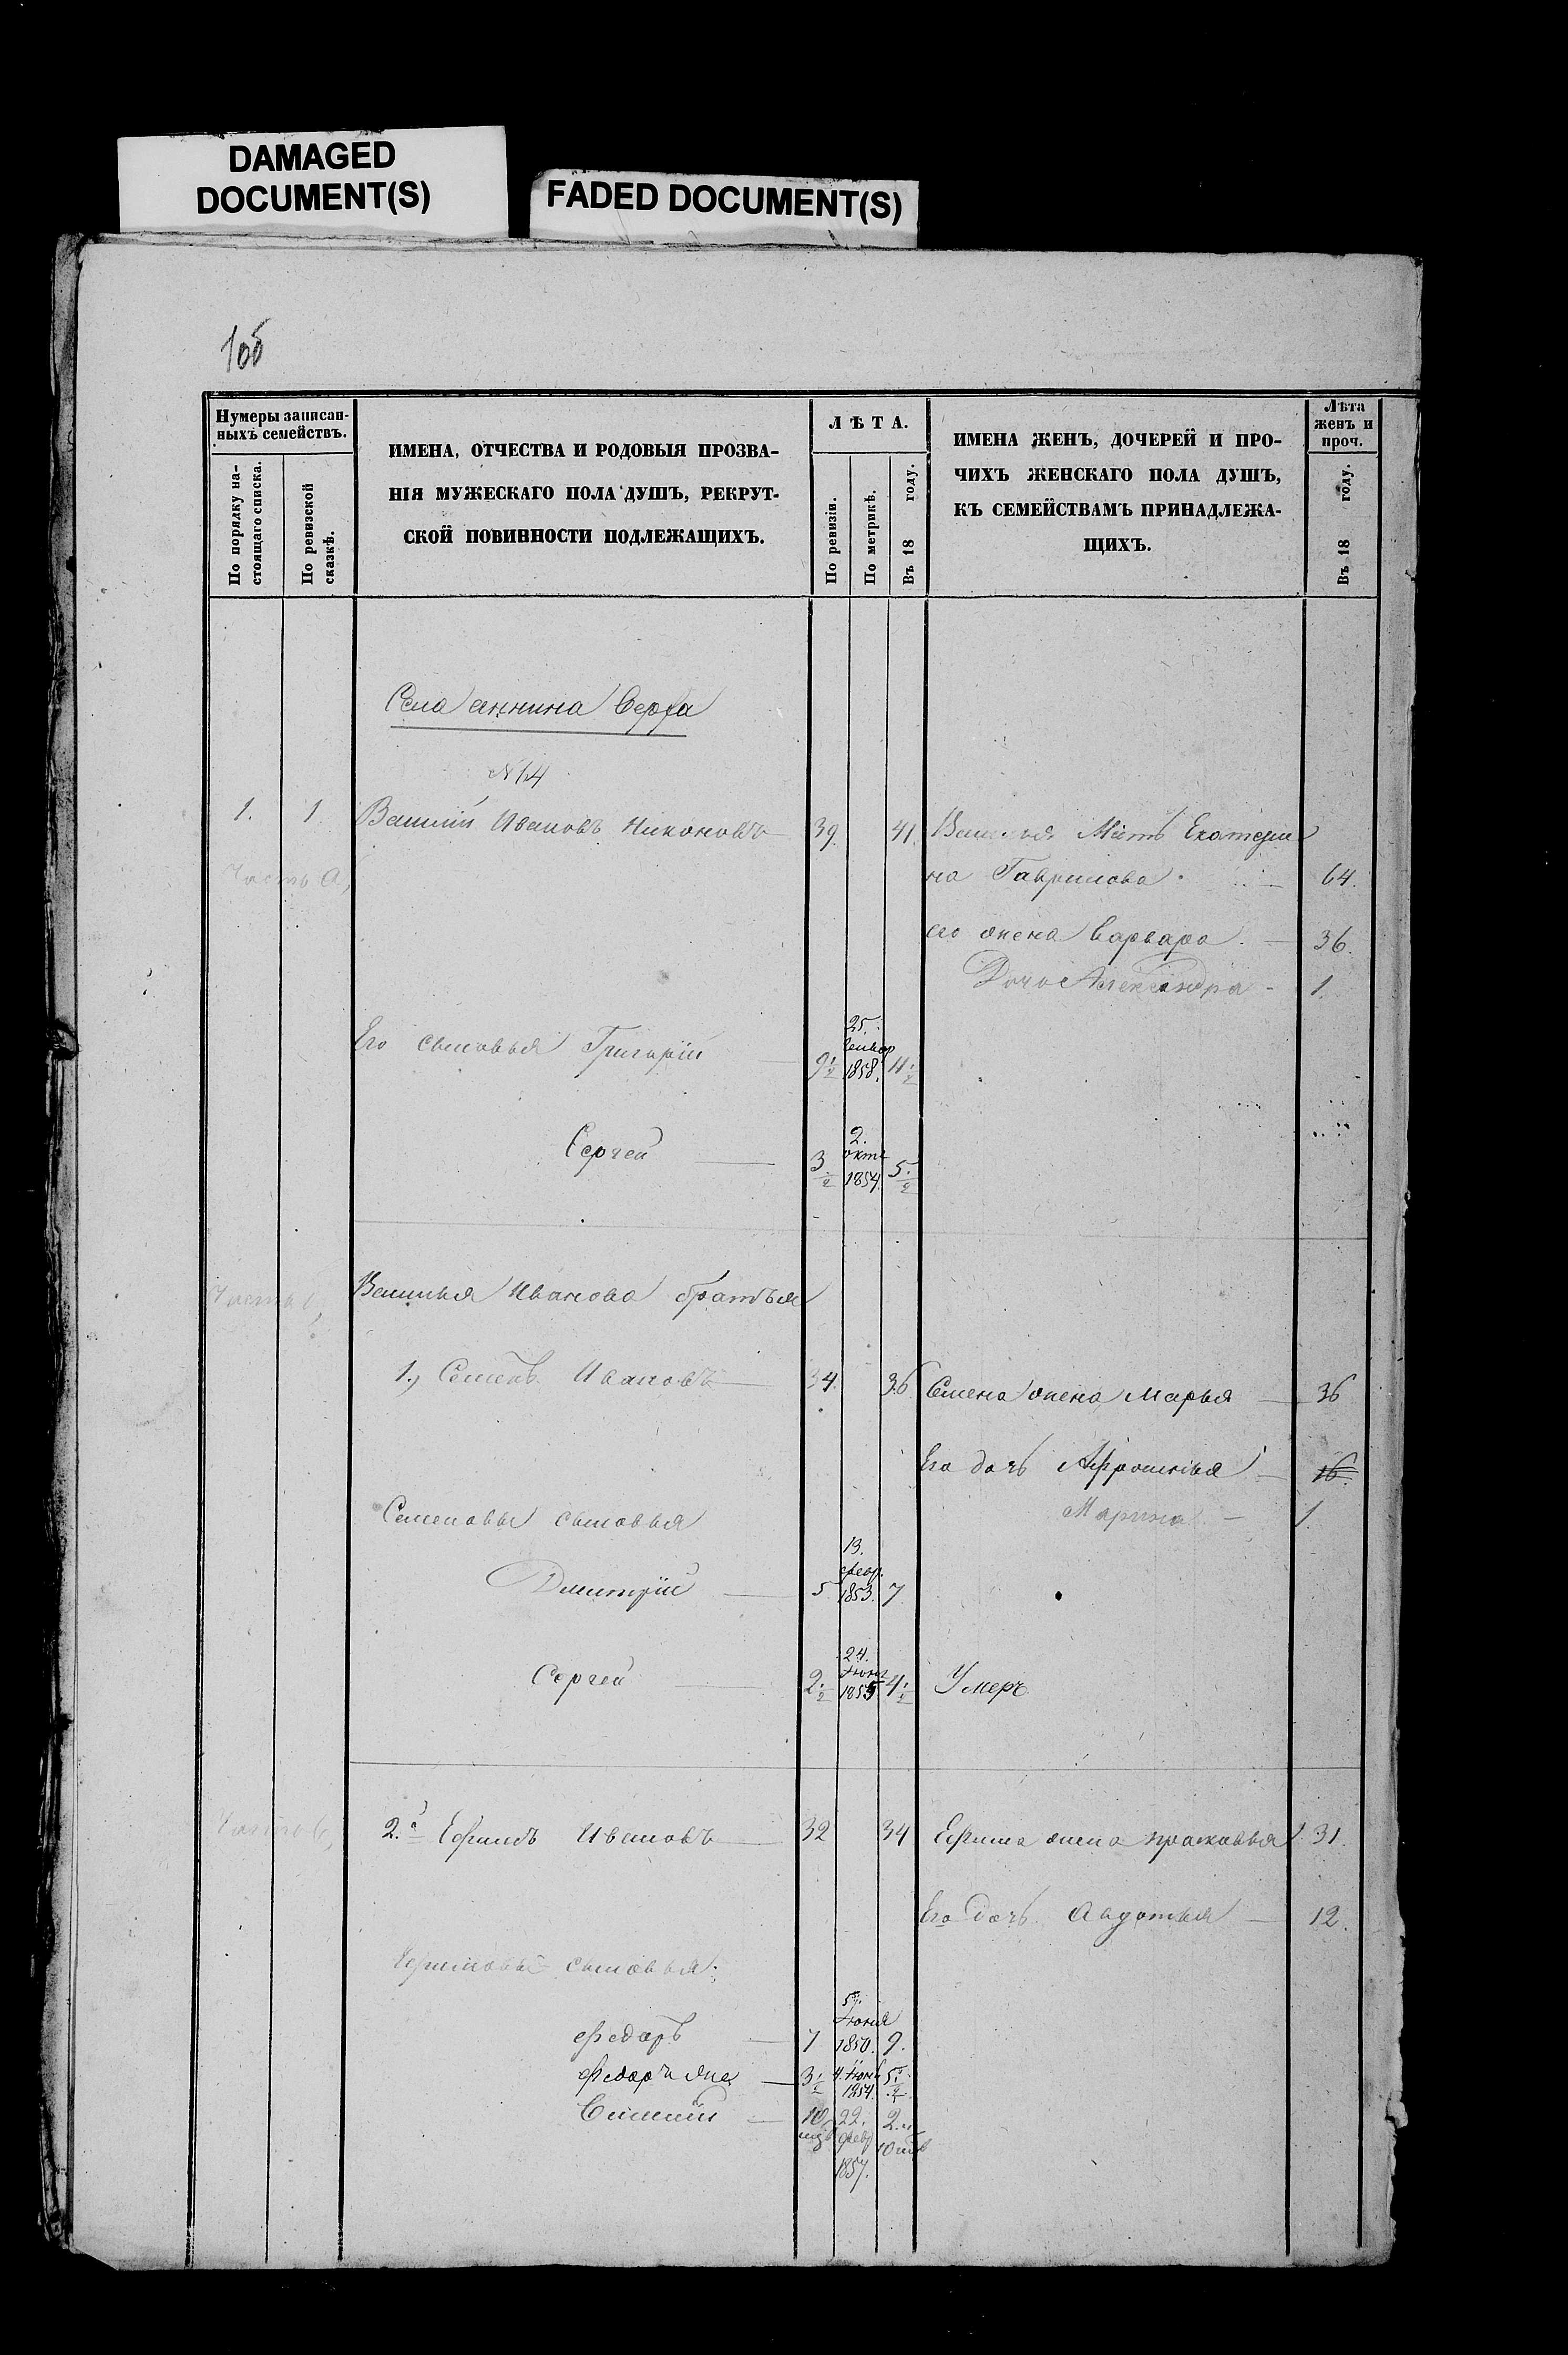 DAMAGED
DOCUMENT(S)
FADED DOCUMENT(S)
Нумеры записан-
ныхъ семействъ.
По порядку на-
стоящаго списка.
По ревизской
сказкѣ.
ИМЕНА, ОТЧЕСТВА И РОДОВЫЯ ПРОЗВА-
НІЯ МУЖЕСКАГО ПОЛА ДУШЪ, РЕКРУТ-
СКОЙ ПОВИННОСТИ ПОДЛЕЖАЩИХЪ.
ЛѢТА.
По ревизіи.
По метрикѣ.
Въ 18 году.
ИМЕНА ЖЕНЪ, ДОЧЕРЕЙ И ПРО-
ЧИХЪ ЖЕНСКАГО ПОЛА ДУШЪ,
КЪ СЕМЕЙСТВАМЪ ПРИНАДЛЕЖА-
ЩИХЪ.
Лѣта
женъ и
проч.
Въ 18 году.
Села Аннина Верха
№ 14
1. 1 Василий Ивановъ Никоновъ 39. 41. Василья Мать Екатери
Часть а, на Гаврилова. 64.
его жена Варвара. 36.
Дочь Александра - 1.
25.
Его сыновья Григорій 9 1/2 1858. 11 1/2
2.
Сергей 3 1/2 окт 1854. 5 1/2
Василья Иванова братья
1, Семенъ Ивановъ 34. 36 Семена жена Марья 36
Его дочь Афросинья 16.
Семеновы сыновья Марина - 1.
13.
февр.
Дмитрій 5 1853. 7
24.
Сергей 2 1/2 1855 4 1/2 Умеръ
2.й Ефимъ Ивановъ 32 34 Ефима жена Прасковья 31.
Его дочь Авдотья 12.
Ефимовы сыновья:
5.
Июня
Федоръ 7 1850. 9.
Федоръ же 3 1/2 4. Июн 1854. 5 1/2
10 22. 2.
февр
1857.